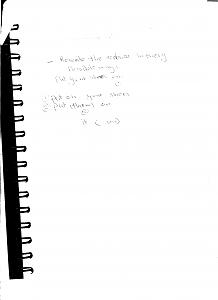 - Rewrite the sentence in every
Possible way:
Put your shoes on.
1: Put on your shoes
2: Put them on
it (on)